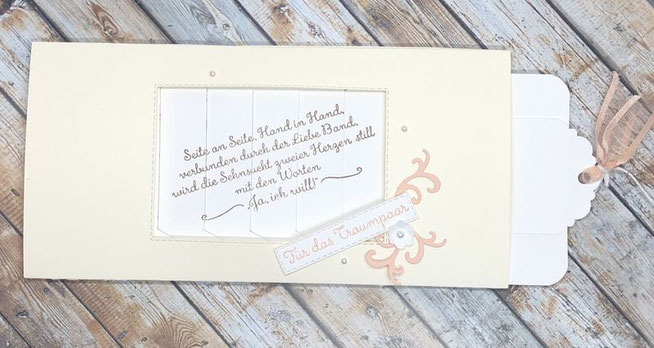 Seite an Seite, Hand in Hand,
verbunden durch der Liebe Band,
wird die Sehnsucht zweier Herzen still
mit den Worten
„Ja, ich will!“
Für das Traumpaar